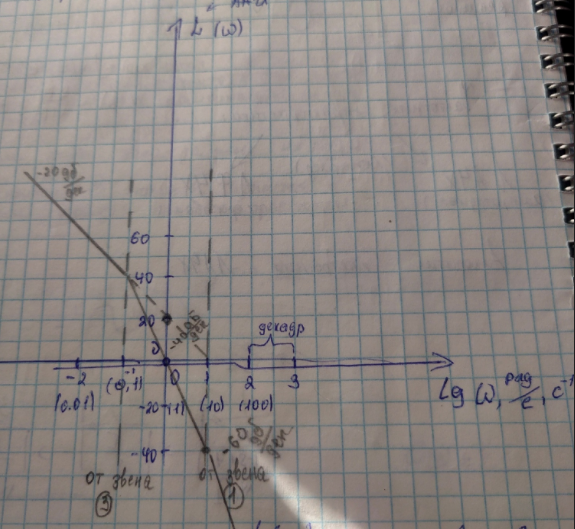 L (ω)
-20 дб/дек
60
40
20
-40 дб/дек
декада
0
-2
-1
0
1
2
3
(0.01)
(0,1)
(1)
(10)
(100)
Lg ω, рад/с, с⁻¹
-20
-40
-60 дб/дек
от звена
③
от звена
①